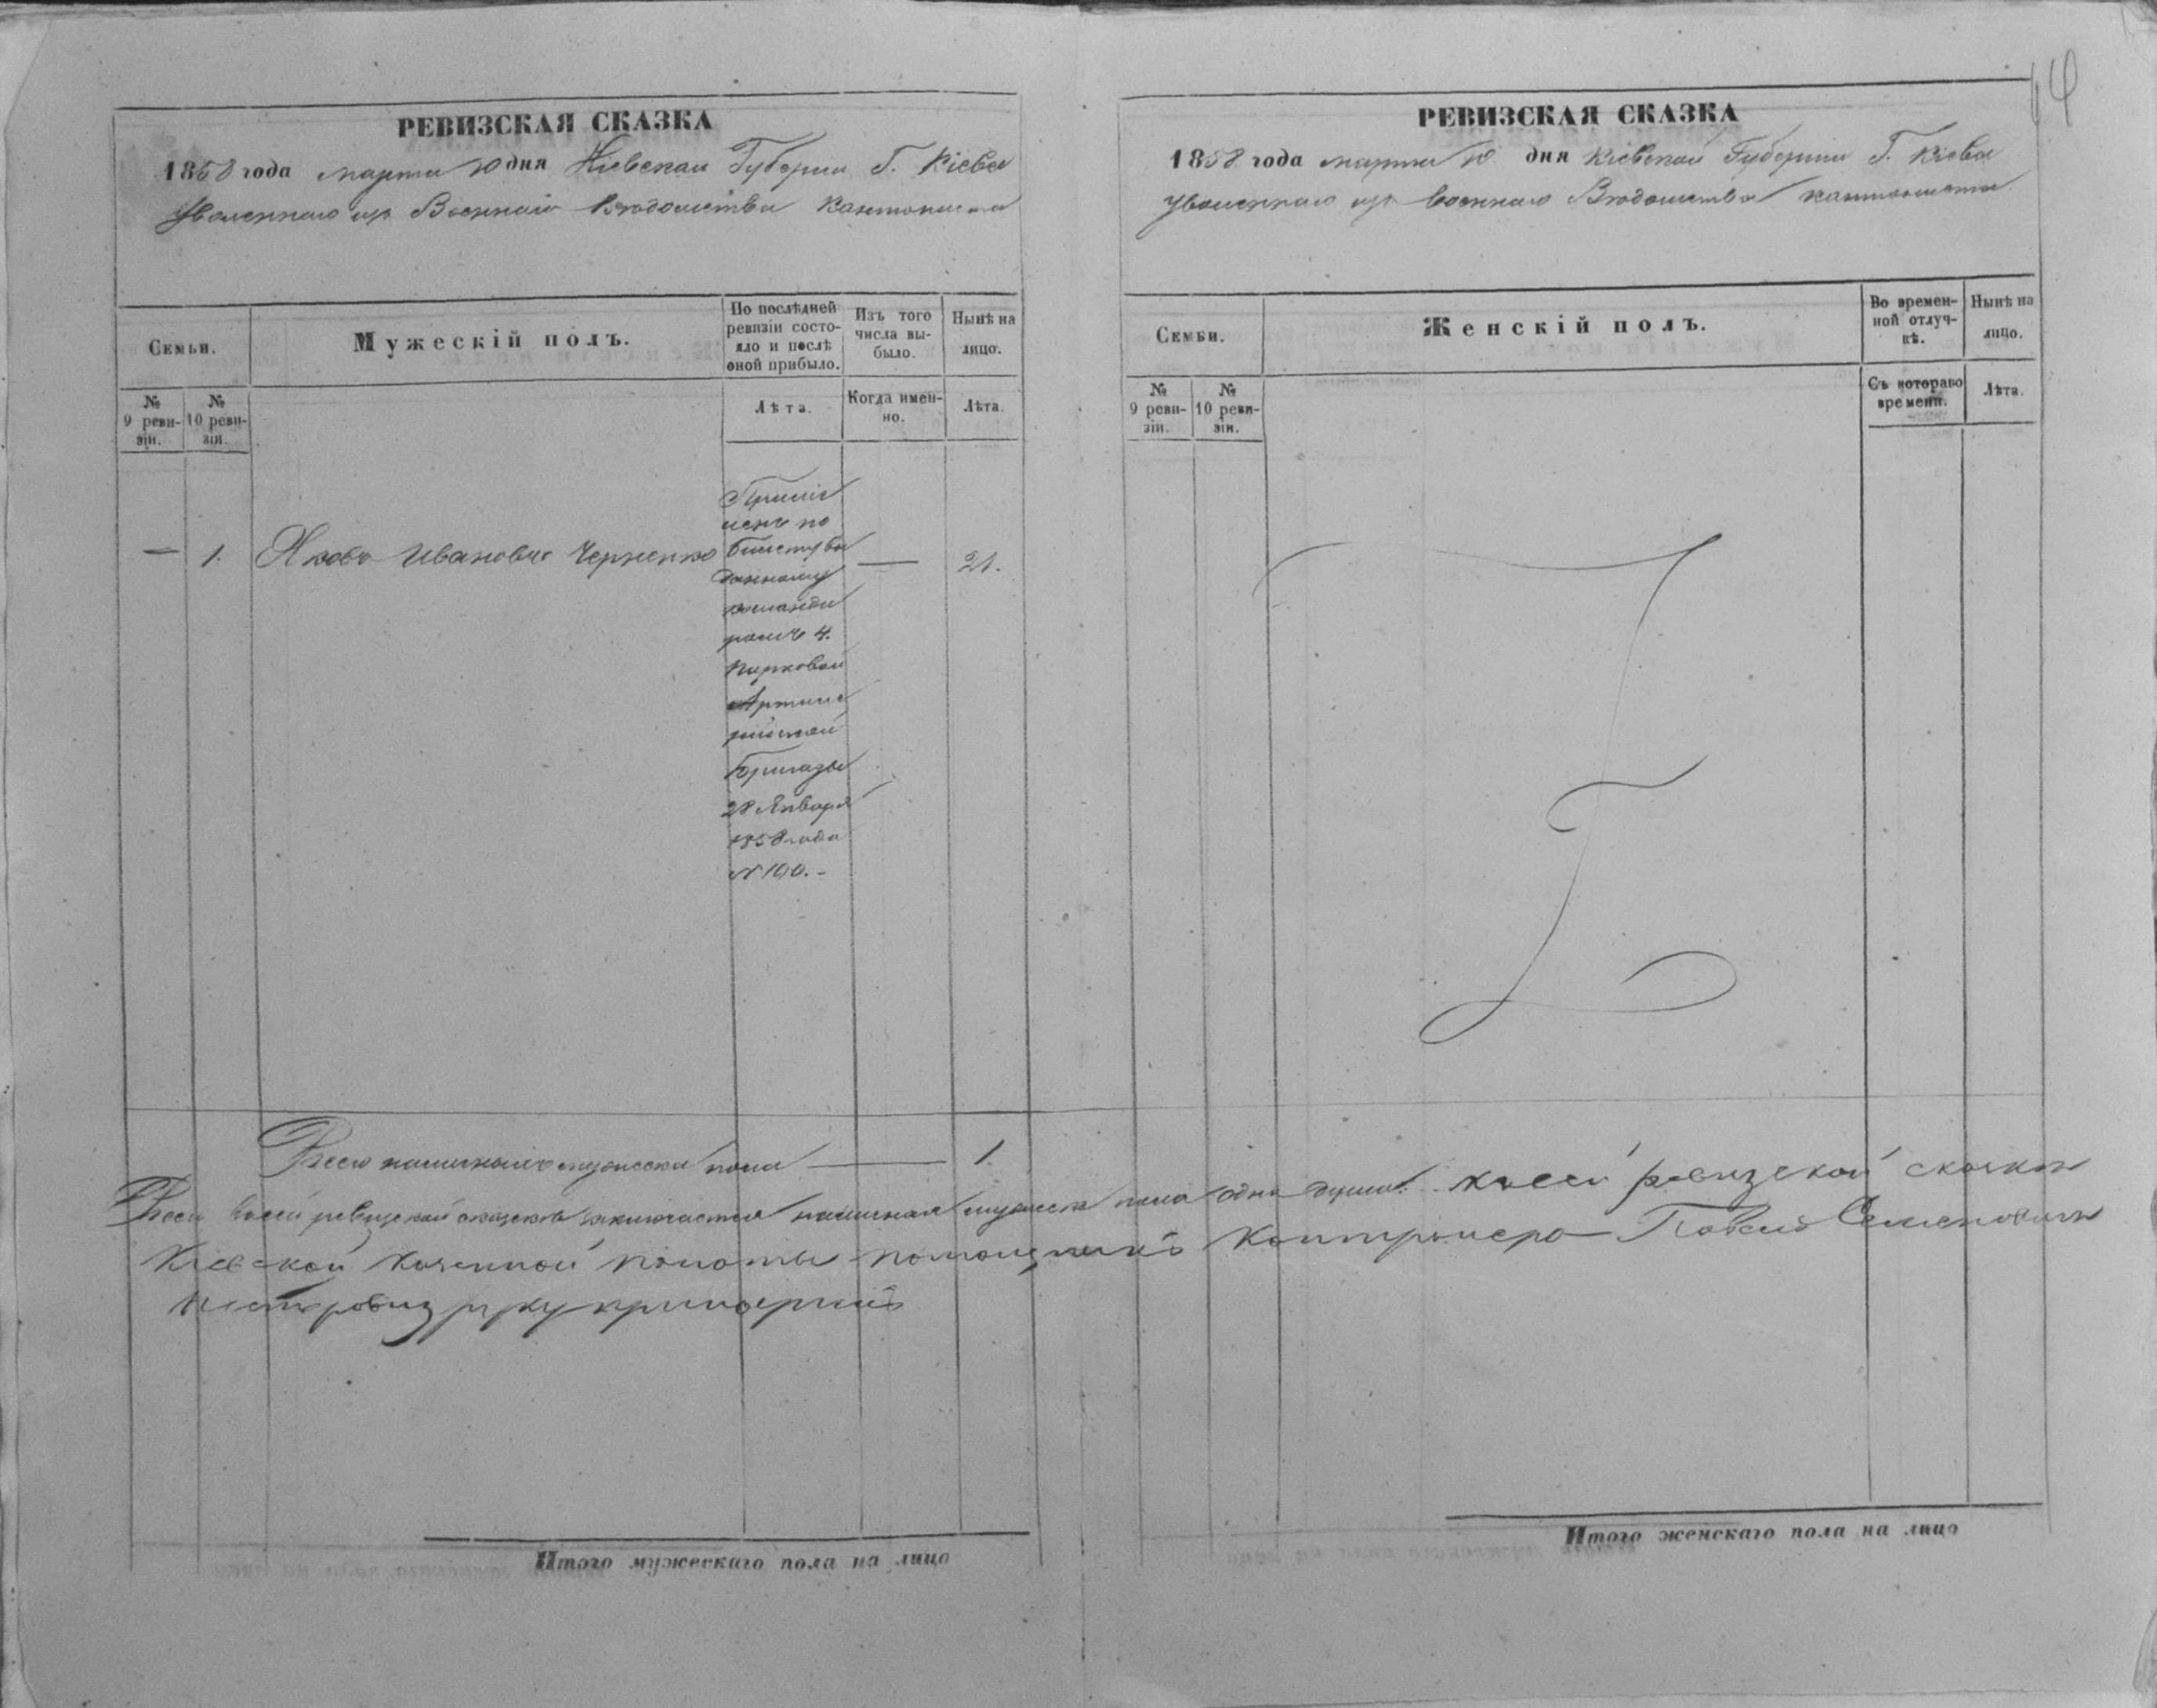 44
РЕВИЗСКАЯ СКАЗКА
1858 года марта 10 дня Кіевской Губерніи Г. Кіева
Уволеннаго изъ Военнаго Вѣдомства Кантониста
Семьи.
Мужескій полъ.
По послѣдней ревизіи состояло и послѣ оной прибыло.
Изъ того числа выбыло.
Нынѣ на лицо.
№ 9 ревизіи.
№ 10 ревизіи.
Лѣта.
Когда именно.
Лѣта.
— 1. Яковъ Ивановъ Черненко — 21.
Причис
ленъ по
билету вы
данному
команди
ромъ 4.
Парковой
Артиле
рійской
Бригады
28 Января
1858 года
№ 190.-
Всего наличныхъ мужеска пола — 1.
Всего въ сей ревизской сказкѣ заключается наличная мужеска пола одна душа. К сей ревизской скаски
Киевской Казенной палаты помощникъ Контролера Павелъ Семеновичъ
руку приложилъ
Итого мужескаго пола на лицо
РЕВИЗСКАЯ СКАЗКА
1858 года марта 10 дня Кіевской Губерніи Г. Кіева
Уволеннаго изъ военнаго Вѣдомства кантониста
Семьи.
Женскій полъ.
Во временной отлучкѣ.
Нынѣ на лицо.
№ 9 ревизіи.
№ 10 ревизіи.
Съ котораго времени.
Лѣта.
Итого женскаго пола на лицо